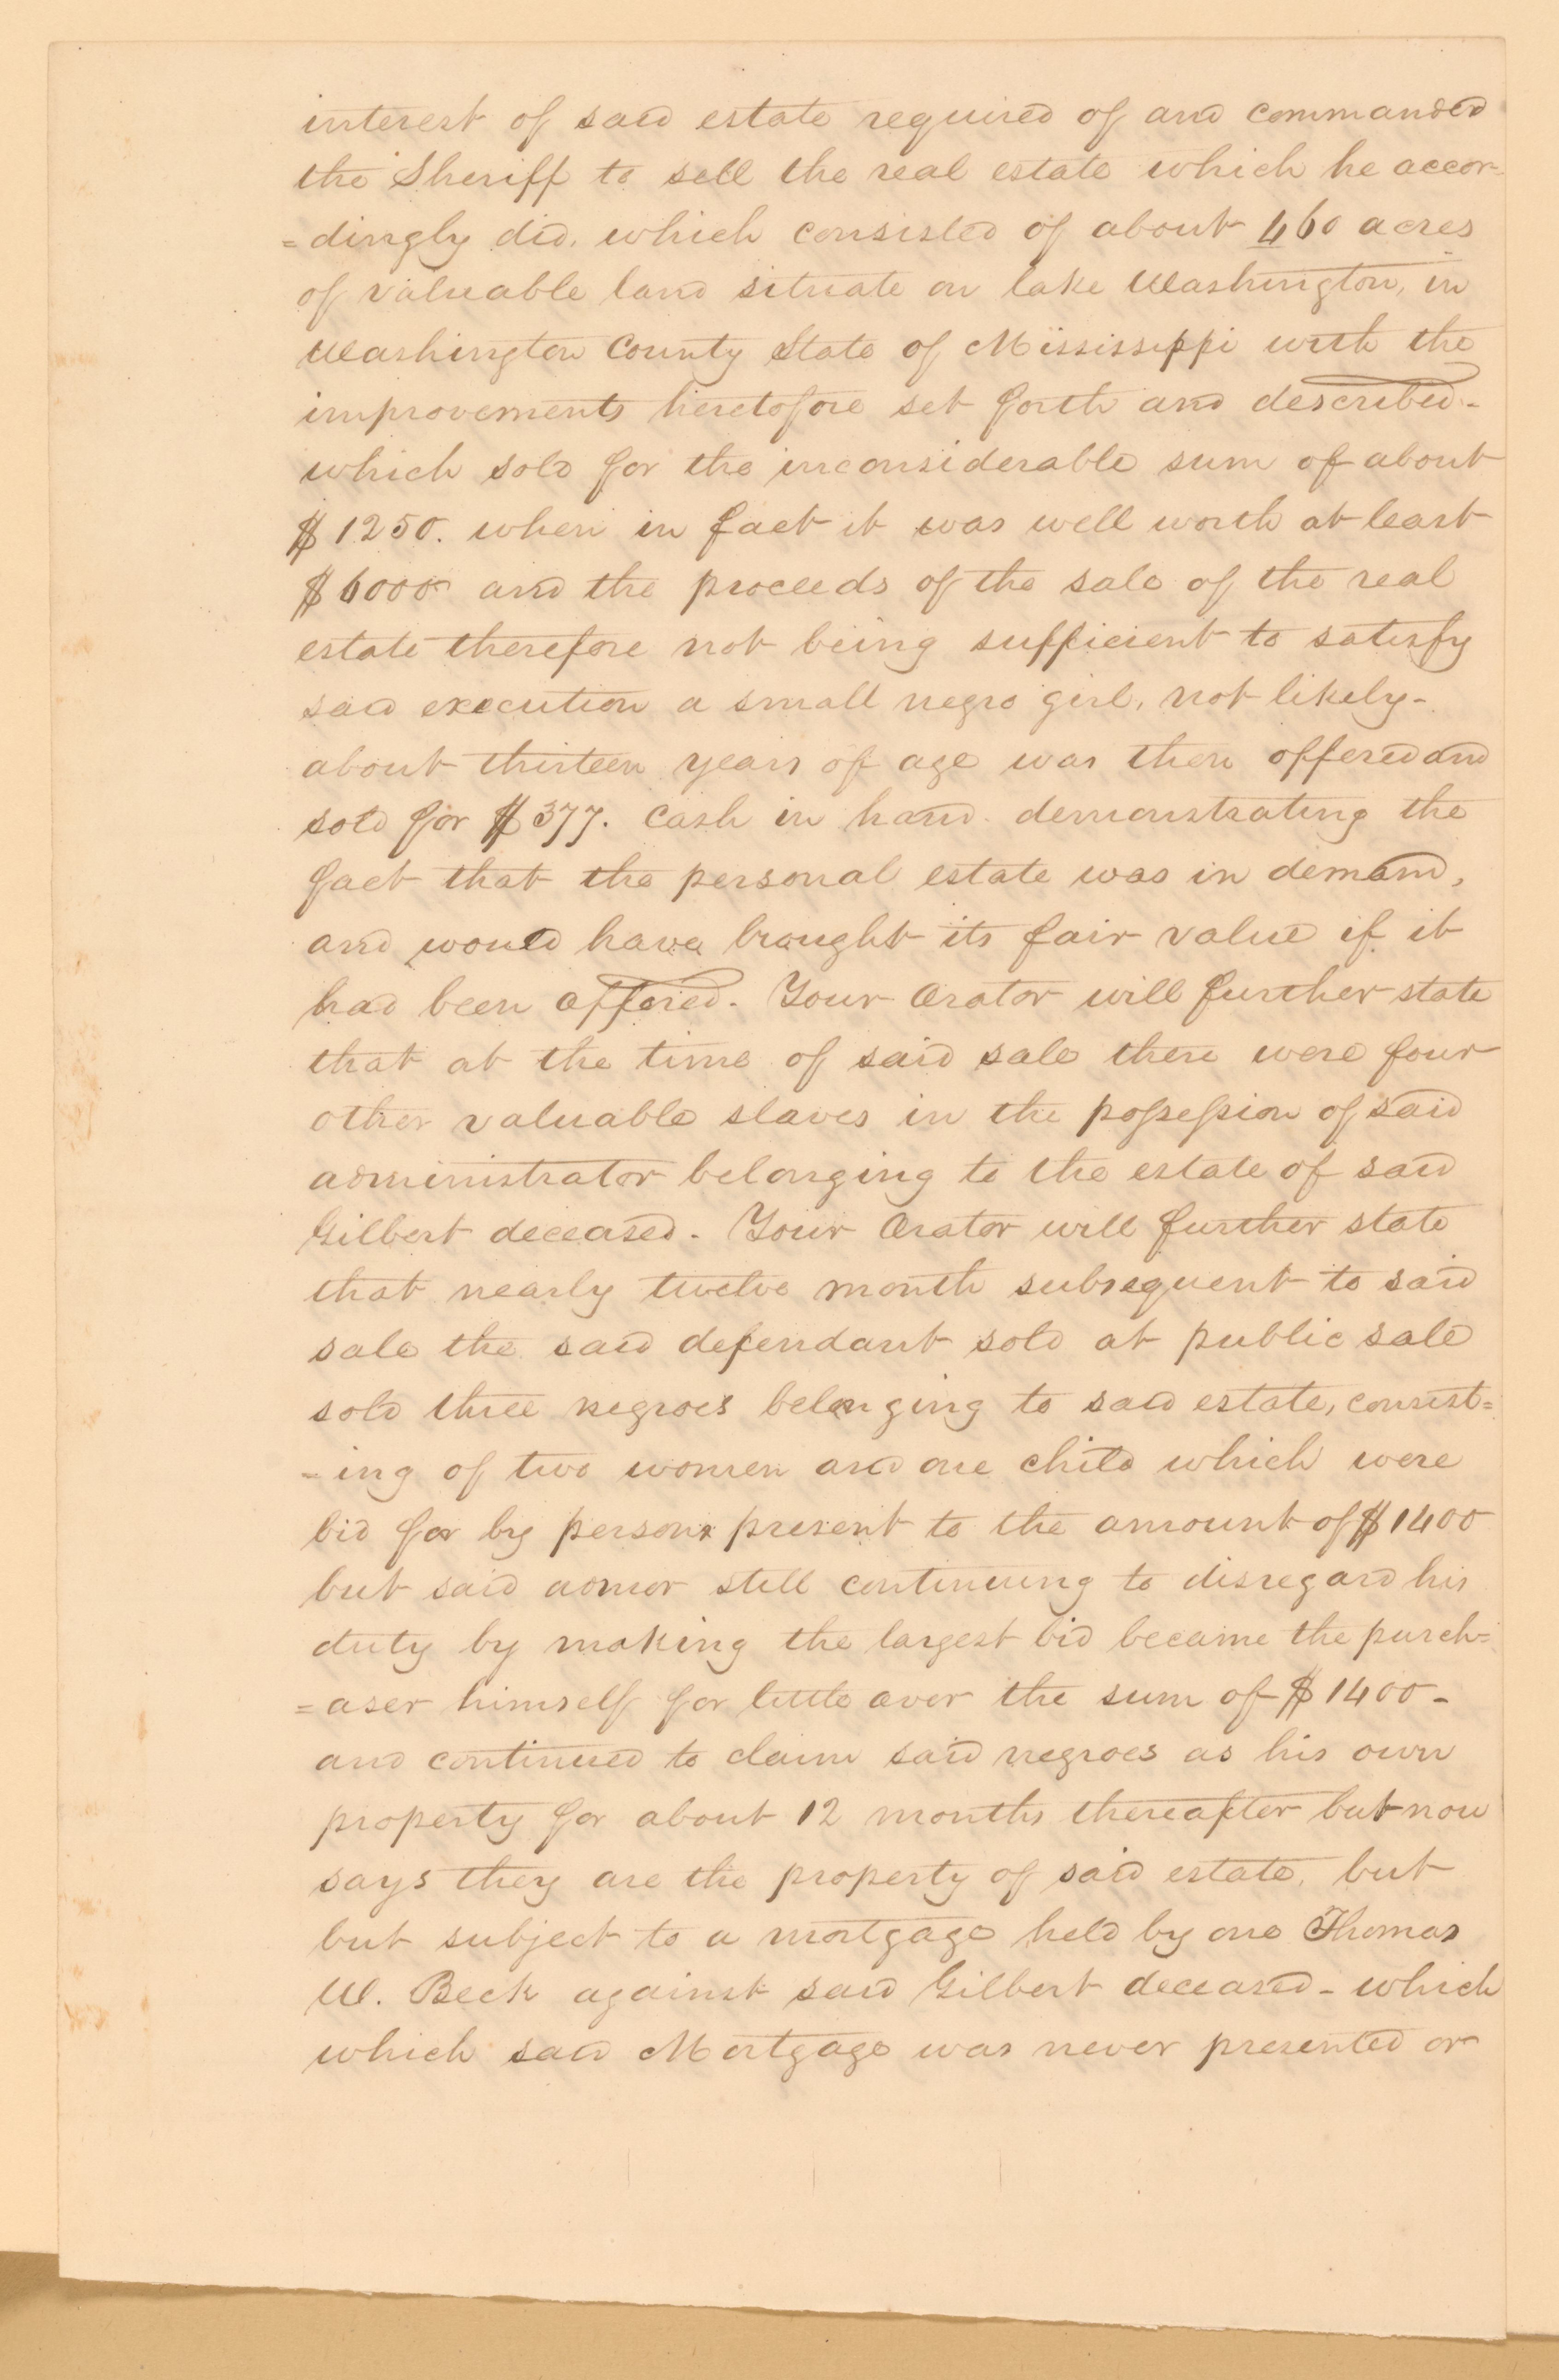 interest of said estate required of and commanded
the Sheriff to sell the real estate which he accor-
=dingly did, which consisted of about 460 acres
of valuable land situate on lake Washington, in
Washington County State of Mississippi with the
improvements heretofore set forth and described-
which sold for the inconsiderable sum of about
$1250. when in fact it was well worth at least
$6000 and the proceeds of the sale of the real
estate therefore not being sufficient to satisfy
said execution a small negro girl, not likely-
about thirteen years of age was then offered and
sold for $377. cash in hand demonstrating the
fact that the personal estate was in demand,
and would have brought its fair value if it
had been offered. Your Orator will further state
that at the time of said sale there were four
other valuable slaves in the possession of said
administrator belonging to the estate of said
Gilbert deceased. Your Orator will further state
that nearly twelve month subsequent to said
sale the said defendant sold at public sale
sold three negroes belonging to said estate, consist=
=ing of two women and one child which were
bid for by persons present to the amount of $1400
but said admor still continuing to disregard his
duty by making the largest bid became the purch=
=aser himself for little over the sum of $1400-
and continued to claim said negroes as his own
property for about 12 months thereafter but now
says they are the property of said estate, but
but subject to a mortgage held by one Thomas
W. Beck against said Gilbert deceased - which
which said Mortgage was never presented or